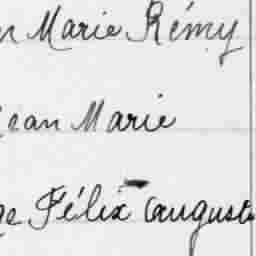 Marie Rémy
Jean Marie
Félix Auguste